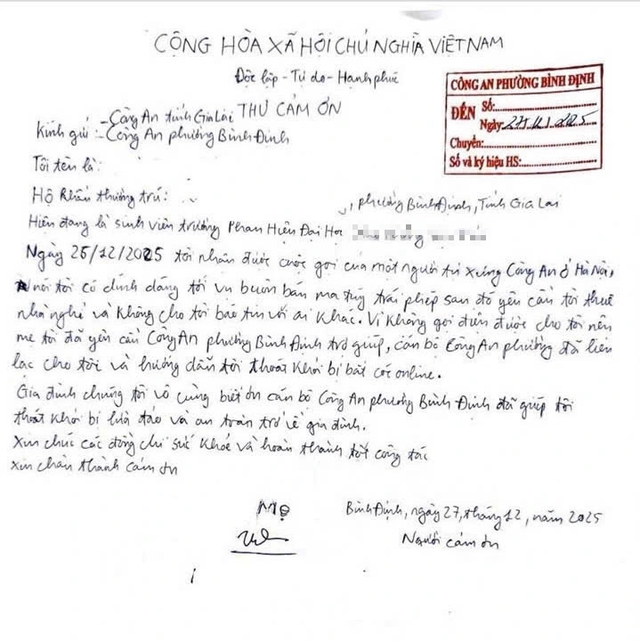 CỘNG HÒA XÃ HỘI CHỦ NGHĨA VIỆT NAM
Độc lập - Tự do - Hạnh phúc
THƯ CẢM ƠN
CÔNG AN PHƯỜNG BÌNH ĐỊNH
ĐẾN Số:
Ngày: 27/12/2025
Chuyển:
Số và ký hiệu HS:
Kính gửi: - Công An tỉnh Gia Lai
- Công An phường Bình Định
Tôi tên là:
Hộ khẩu thường trú: , phường Bình Định, Tỉnh Gia Lai
Hiện đang là sinh viên trường Phân Hiệu Đại Học
Ngày 25/12/2025 tôi nhận được cuộc gọi của một người tự xưng Công An ở Hà Nội,
nói tôi có dính dáng tới vụ buôn bán ma túy trái phép sau đó yêu cầu tôi thuê
nhà nghỉ và không cho tôi báo tin với ai khác. Vì không gọi điện được cho tôi nên
mẹ tôi đã yêu cầu Công An phường Bình Định trợ giúp, cán bộ Công An phường đã liên
lạc cho tôi và hướng dẫn tôi thoát khỏi bị bắt cóc online.
Gia đình chúng tôi vô cùng biết ơn cán bộ Công An phường Bình Định đã giúp tôi
thoát khỏi bị lừa đảo và an toàn trở về gia đình.
Xin chúc các đồng chí sức khỏe và hoàn thành tốt công tác
xin chân thành cảm ơn
Mẹ
Bình Định, ngày 27, tháng 12, năm 2025
Người cảm ơn